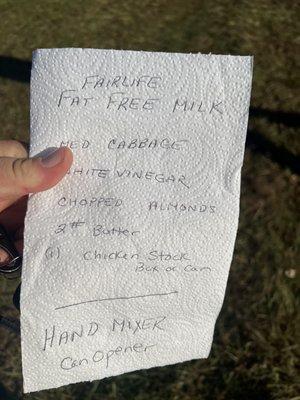 FAIRLIFE
FAT FREE MILK
MED CABBAGE
WHITE VINEGAR
CHOPPED ALMONDS
2# Butter
(1) Chicken Stock
Box or Can
HAND MIXER
Can Opener